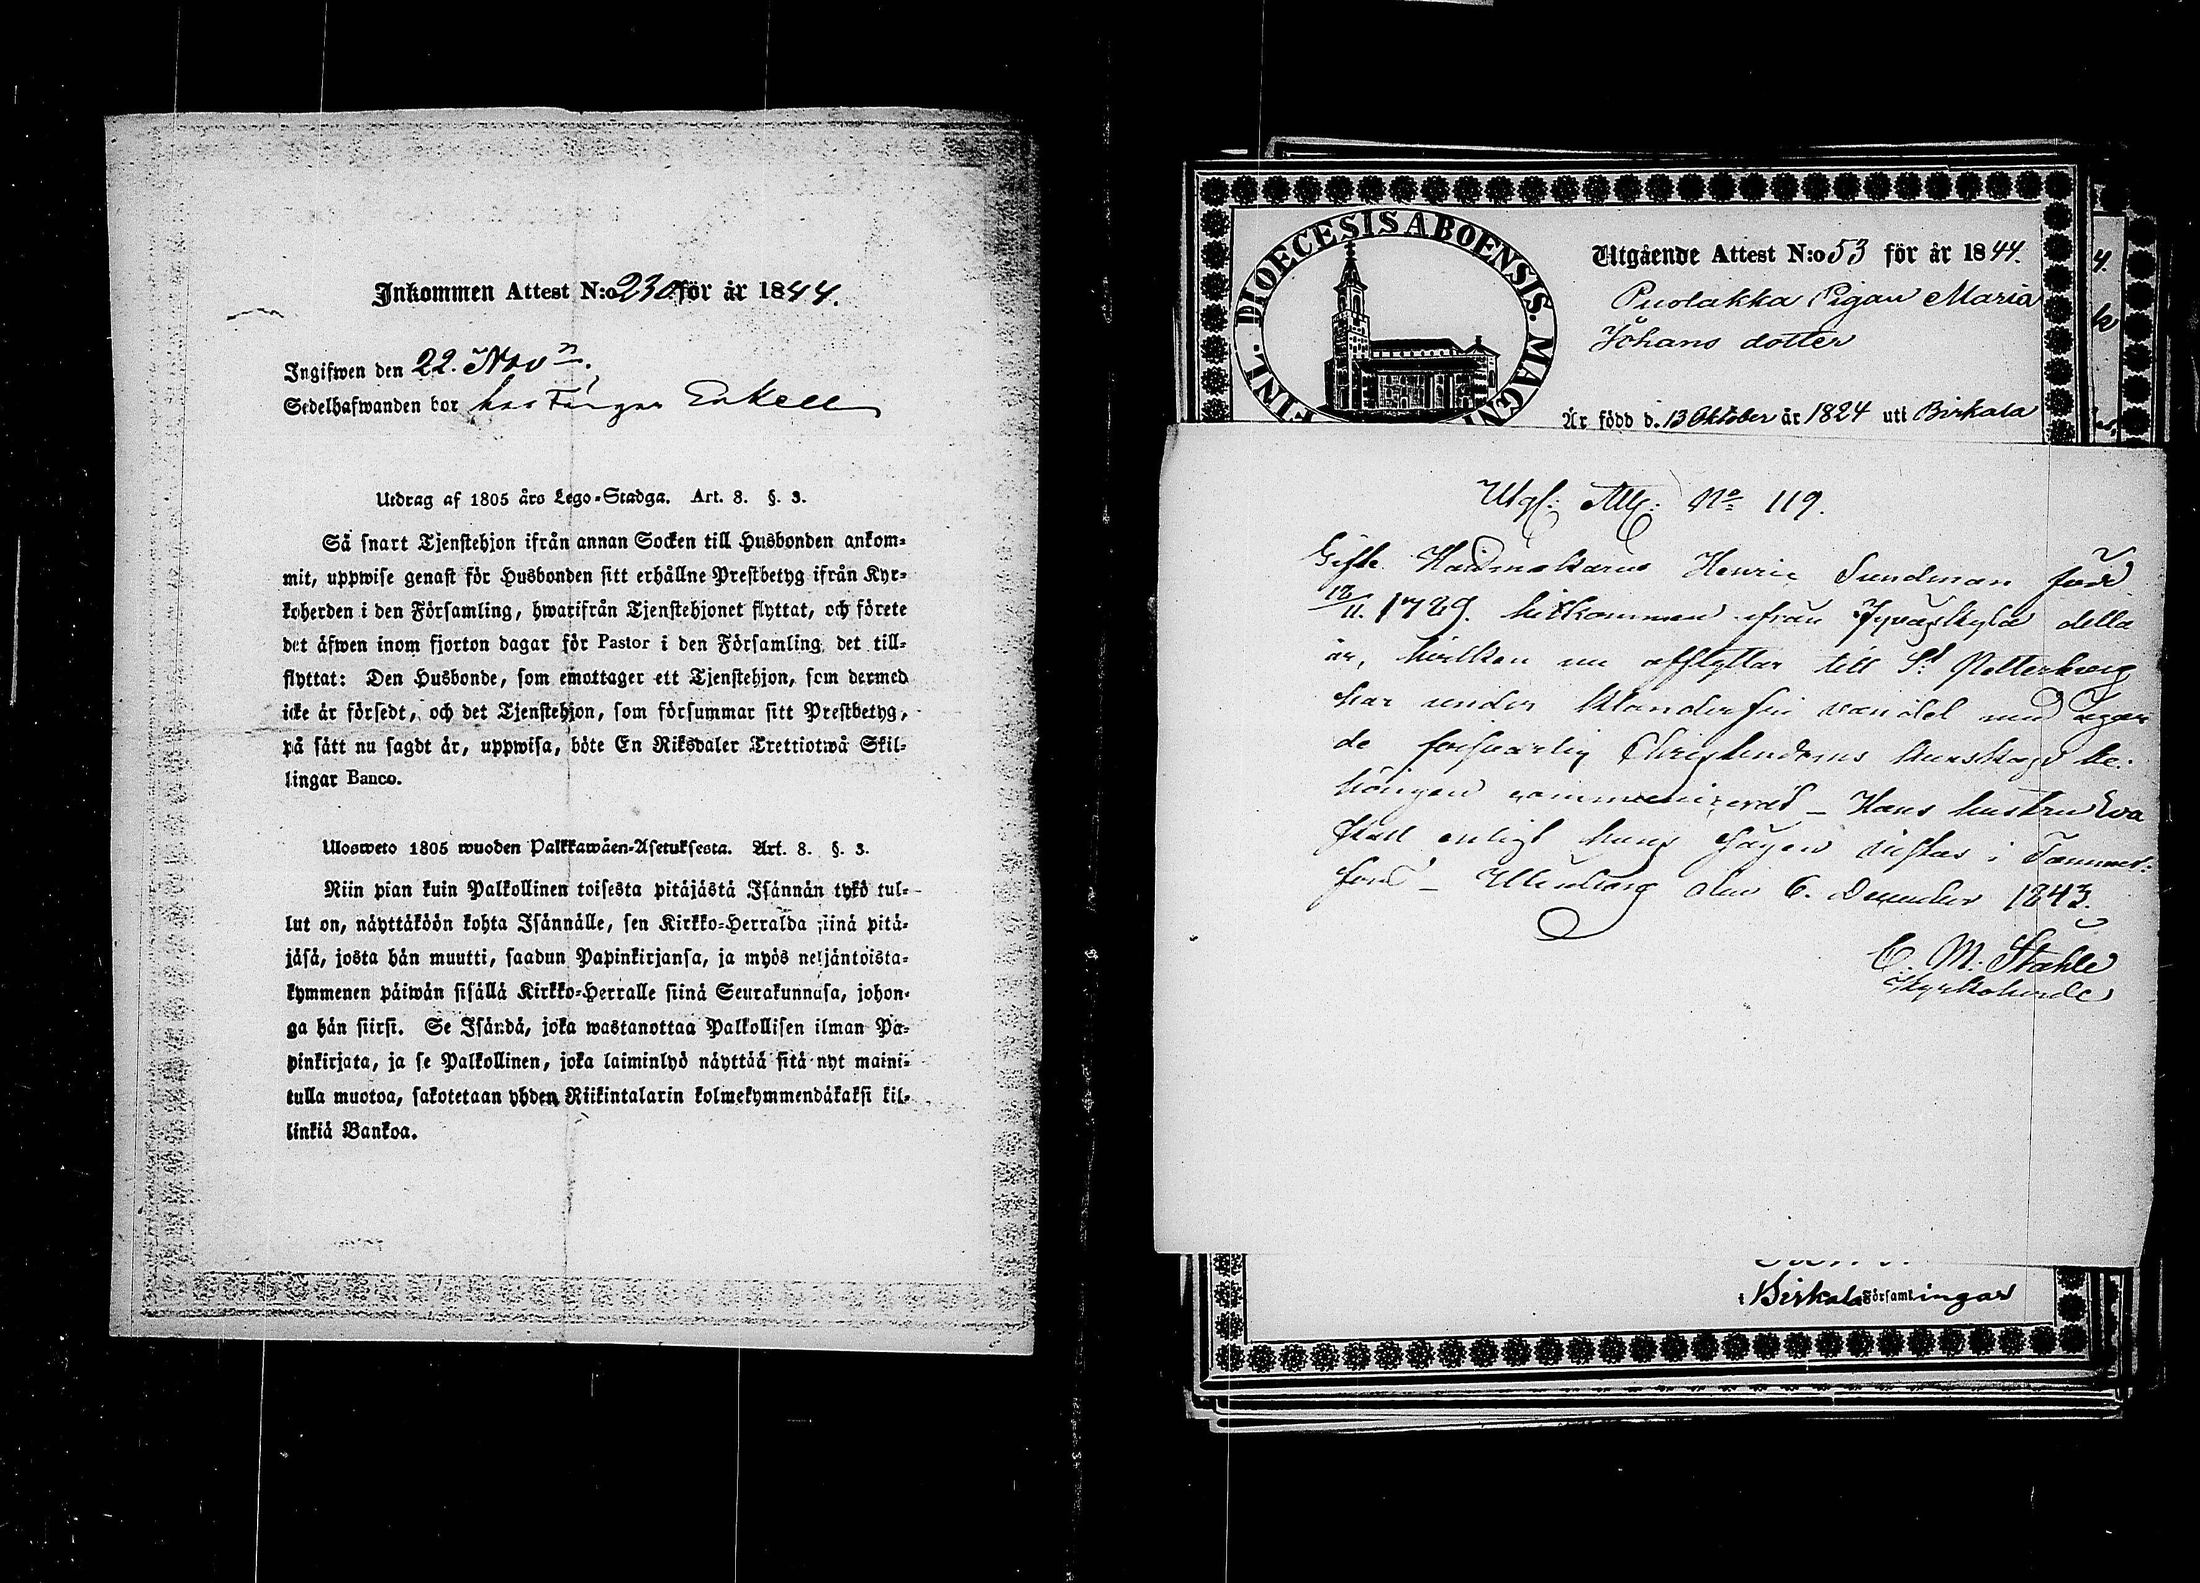 Inkommen Attest N:o 230 för år 1844.
Ingifwen den 22. Nov
Sedelhafwanden bor hos Enkell
Utdrag af 1805 års Lego-Stadga. Art. 8. §. 3.
Så snart Tjenstehjon ifrån annan Socken till Husbonden ankom-
mit, uppwise genast för Husbonden sitt erhållne Prestbetyg ifrån Kyr-
koherden i den Församling, hwarifrån Tjenstehjonet flyttat, och förete
det äfwen inom fjorton dagar för Pastor i den Församling det till-
flyttat: Den Husbonde, som emottager ett Tjenstehjon, som dermed
icke är försedt, och det Tjenstehjon, som försummar sitt Prestbetyg,
på sätt nu sagdt är, uppwisa, böte En Riksdaler Trettiotwå Skil-
lingar Banco.
Ulosweto 1805 wuoden Palkkawäen-Asetuksesta. Art. 8. §. 3.
Niin pian kuin Palkollinen toisesta pitäjästä Isännän tykö tul-
lut on, näyttäköön kohta Isännälle, sen Kirkko-Herralda siinä pitä-
jäsä, josta hän muutti, saadun Papinkirjansa, ja myös neljäntoista-
kymmenen päiwän sisällä Kirkko-Herralle siinä Seurakunnasa, johon-
ga hän siirsi. Se Isändä, joka wastanottaa Palkollisen ilman Pa-
pinkirjata, ja se Palkollinen, joka laiminlyö näyttää sitä nyt maini-
tulla muotoa, sakotetaan yhden Riikintalarin kolmekymmendäkaksi kil-
linkiä Bankoa.
FINL. DIOECESIS ABOENSIS. MAGN
Utgående Attest N:o 53 för år 1844.
Puolakka Pigan Maria
Johans dotter
Är född d. 13 Oktober år 1824 uti Birkala
Utgf: Att: No 119.
Gifte Handskmakaren Henric Sundman född
12/11. 1789. hitkommen ifrån Jyväskylä detta
år, hvilken nu afflyttar till St Petterburg
har under klanderfri vandel med ägan-
de försvarlig Christendoms kunskap be-
hörigen communicerat – Hans hustru Eva
skall enligt hans sägen vistas i Tammer-
fors – Uleåborg den 6. December 1843.
C. M. Ståhle
Kyrkoherde
i Birkala Församlingar